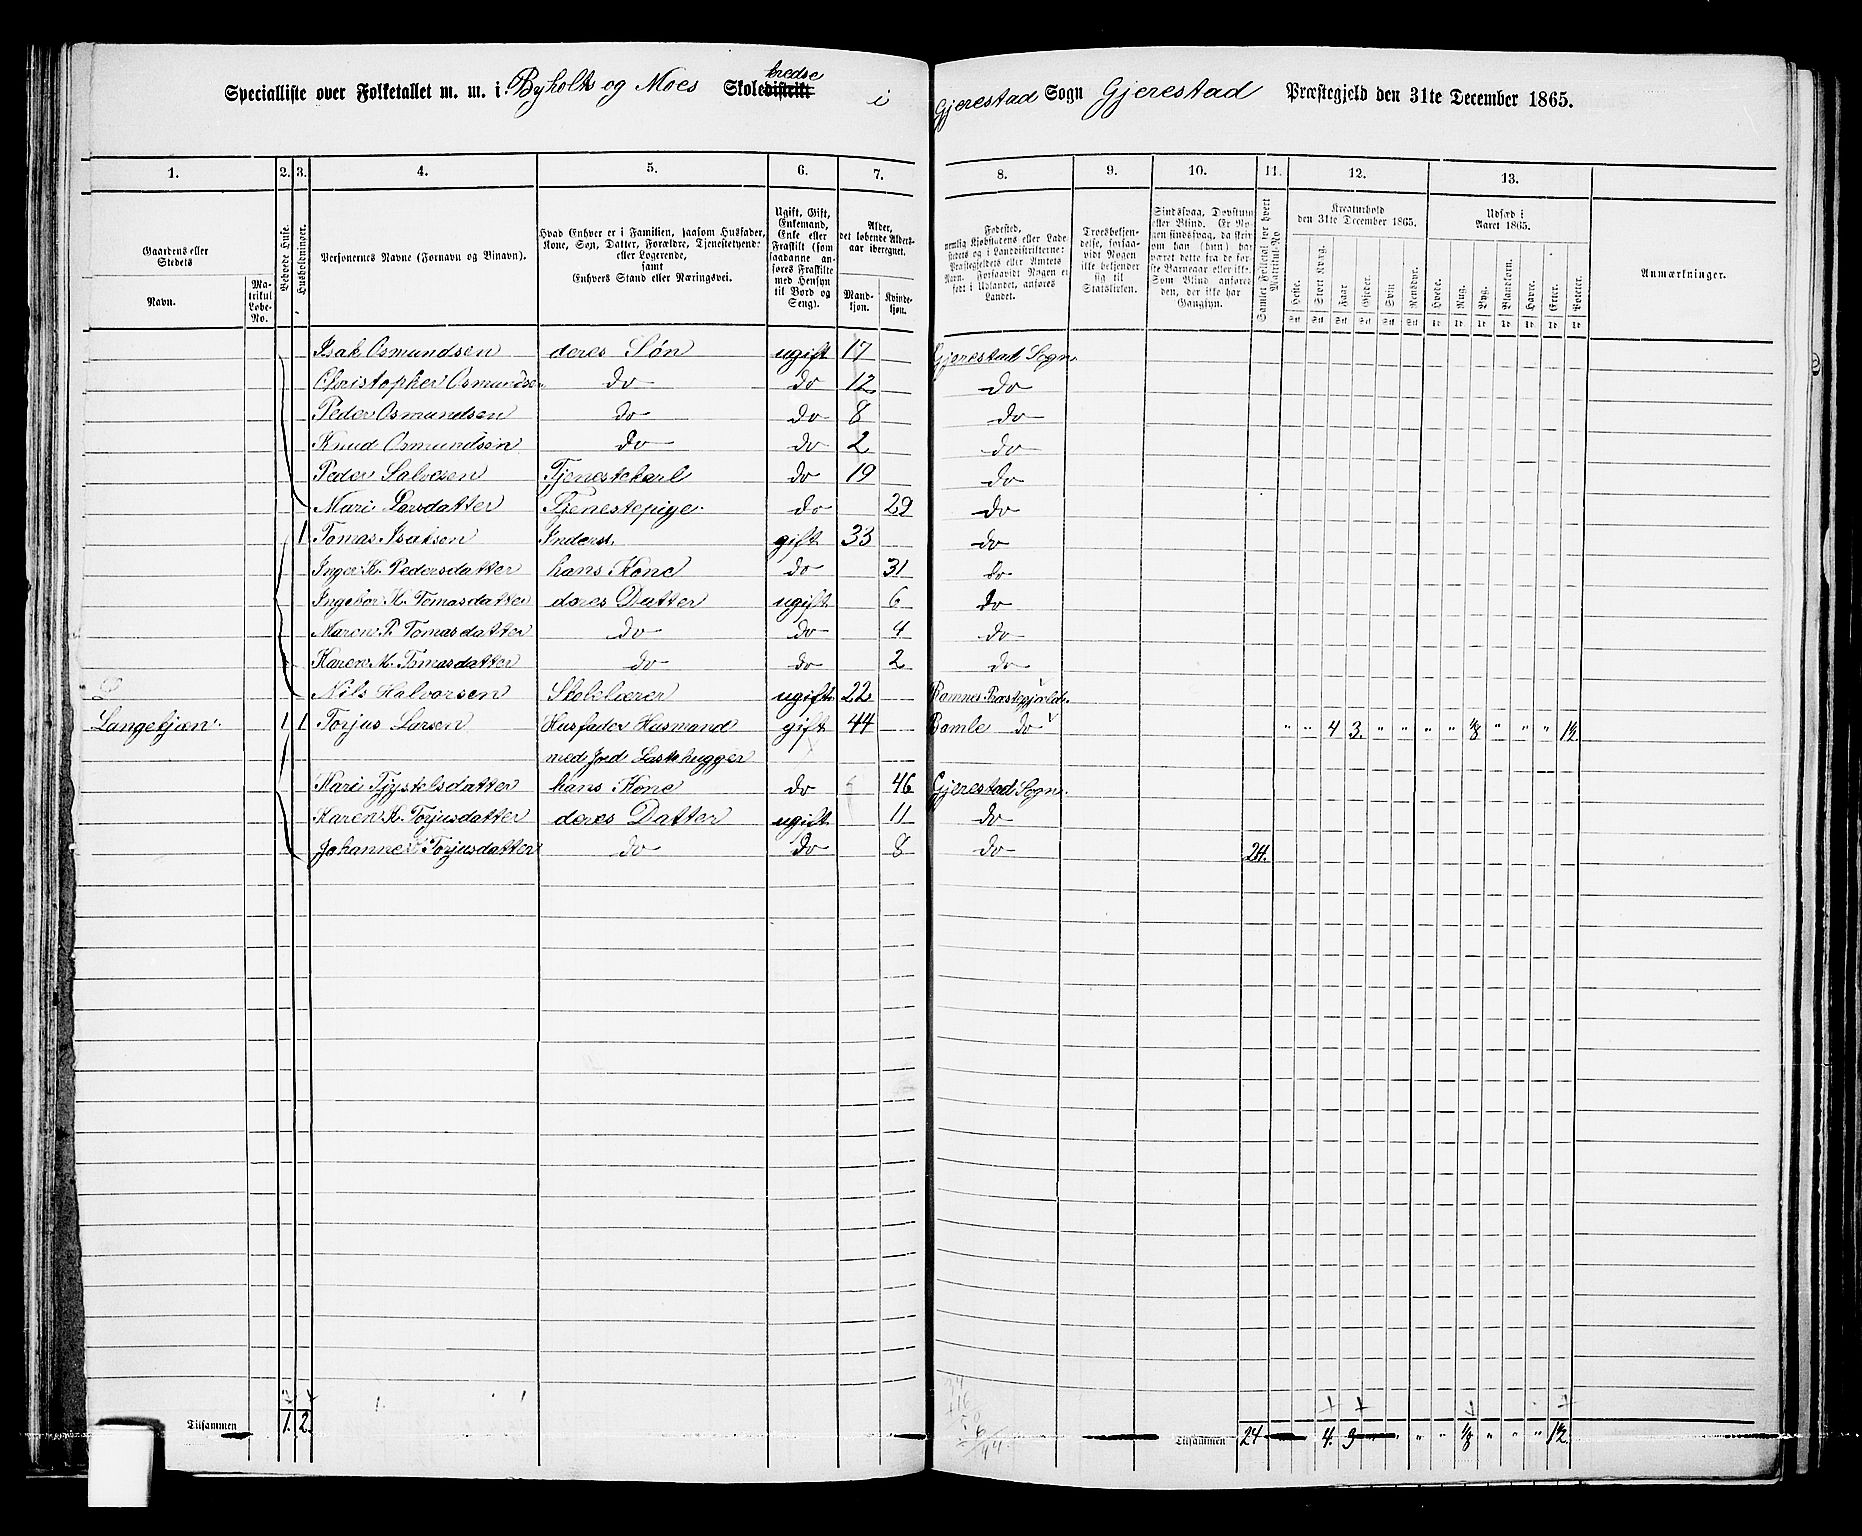 Specialliste over Folketallet m. m. i Byholts og Moes Skoledistrikt kredse i Gjerestad Sogn Gjerestad Præstegjeld den 31te December 1865.
1. 2. 3. 4. 5. 6. 7. 8. 9. 10. 11. 12. 13.
Gaardens eller Stedets
Navn. Matrikul Løbe-No.
Beboede Huse.
Husholdninger.
Personernes Navne (Fornavn og Tilnavn).
Hvad Enhver er i Familien, saasom Husfader, Kone, Søn, Datter, Forældre, Tjenestetyende eller Logerende, samt Enhvers Stand eller Næringsvei.
Ugift, Gift, Enkemand, Enke eller Fraskilt (som saadanne anføres Fraskilte med Hensyn til Bord og Seng).
Alder, det løbende Aldersaar iberegnet.
Mandkjøn. Kvindekjøn.
Fødested,
Troesbekjendelse, forsaavidt Nogen ikke bekjender sig til Statskirken.
Samlet Folketal for hvert Matrikul-No
Kreaturhold den 31te December 1865.
Heste. Stort Kvæg. Faar Gjeder Svin Rensdyr.
Udsæd i Aaret 1865.
Hvede. Rug. Byg. Blandkorn. Havre. Erter. Poteter.
Anmærkninger.
Isak Osmundsen deres Søn ugift 17 Gjerestad Sogn.
Christopher Osmundsen do do 12 do
Peder Osmundsen do do 8 do
Knud Osmundsen do do 2 do
Peder Salvesen Tjenestekarl do 19 do
Mari Larsdatter Tjenestepige do 29 do
1 Tomas Isaksen Inderst gift 33 do
Inger K. Pedersdatter hans Kone do 31 do
Ingebor K. Tomasdatter deres Datter ugift 6 do
Maren P. Tomasdatter do do 4 do
Karen M. Tomasdatter do do 2 do
Nils Halvorsen Skolelærer ugift 22 Præstegjæld.
Langetjæn. 1 1 Torjus Larsen Husfader Husmand gift 44 Bamle do " " 4 3 " " " " 1/8 " " " 1½
med Jord Lasthugger
Kari hans Kone do 46 Gjerestad Sogn.
Karen K. Torjusdatter deres Datter ugift 11 do
Johanne Torjusdatter do do 8 do 24.
Tilsammen 1. 2. Tilsammen 24 4. 3 " " " " 1/8 " " " 1½